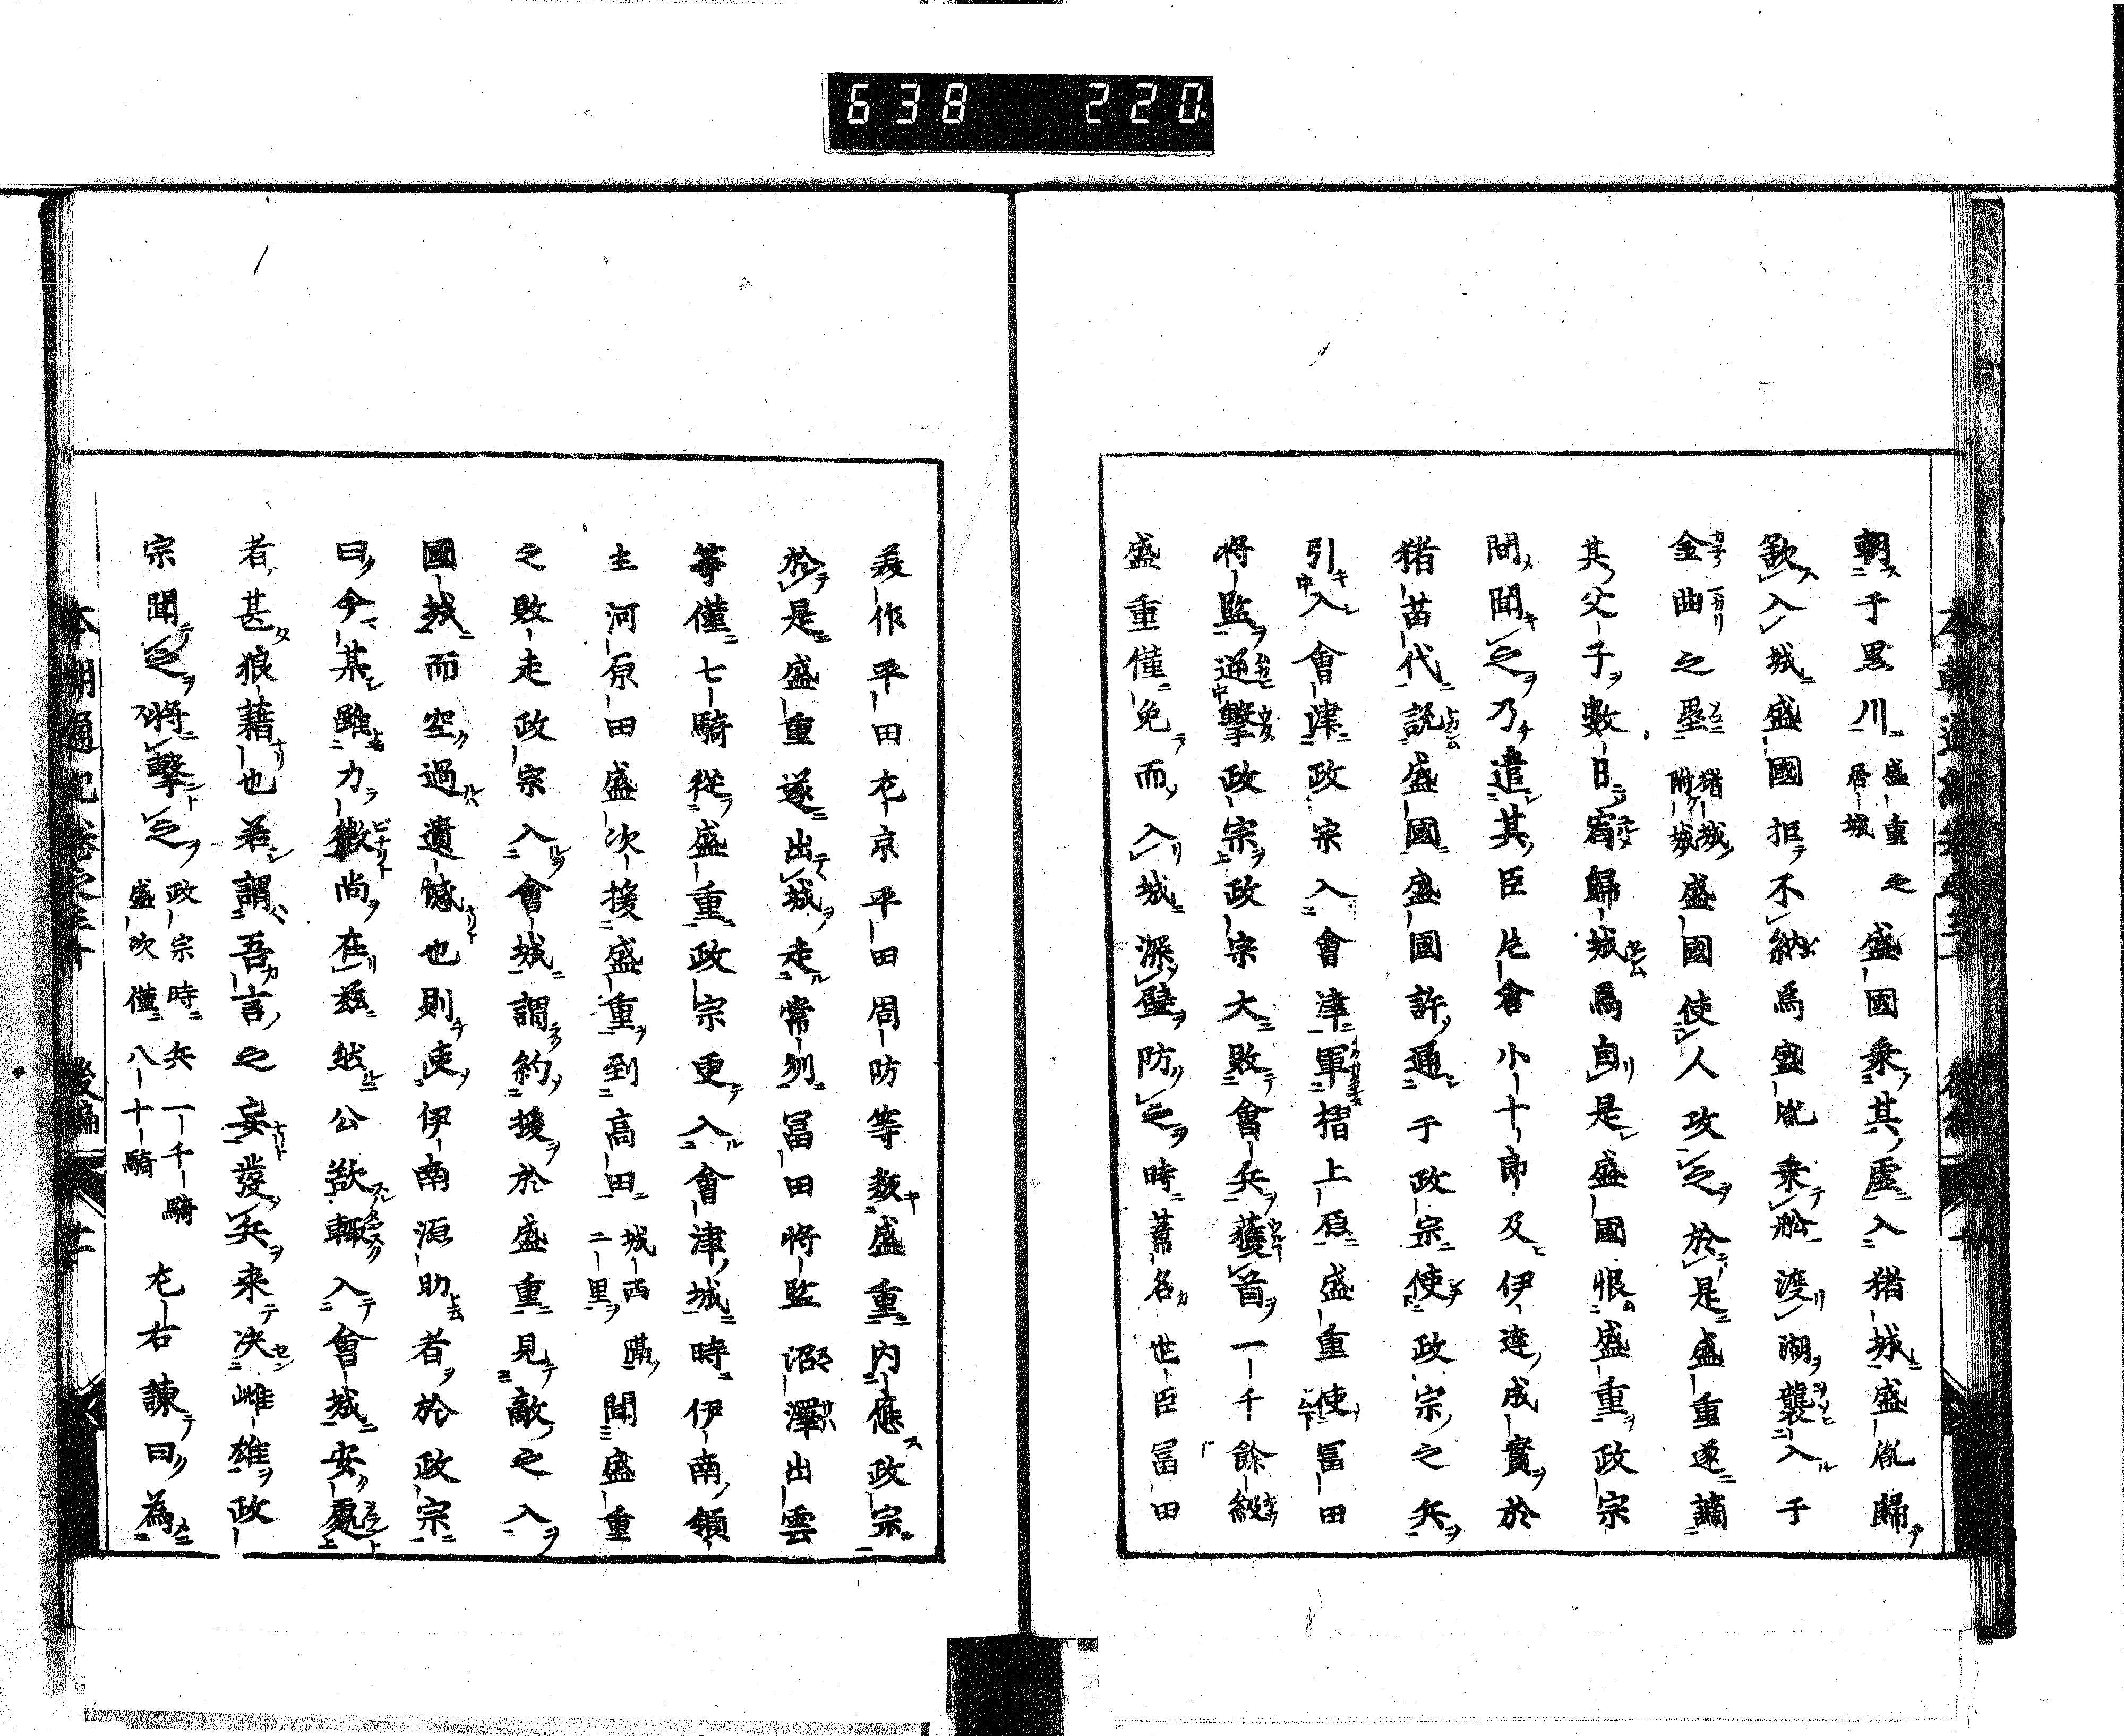 638 220
朝于黒川盛重之居城盛國乗其虚入猪城盛胤歸
欲入城盛國拒不納為盛胤乗舩渡湖襲入于
金曲之壘猪城附城盛國使人攻之於是盛重遂謫
其父子數日宿歸城爲自是盛國恨盛重政宗
間聞之乃遣其臣片倉小十郎及伊達成實於
猪苗代説盛國盛國許通于政宗使政宗之兵
引入會津政宗入會津軍摺上原盛重使冨田
將監逆撃政宗政宗大敗會兵獲首一千餘級
盛重僅免而入城深壁防之時蘆名世臣冨田
羡作平田左京平田周防等叛盛重内應政宗
於是盛重遂出城走常州冨田將監沼澤出雲
等僅七騎從盛重政宗更入會津城時伊南領
主河原田盛次援盛重到高田城西二里隣聞盛重
之敗走政宗入會城謂約援於盛重見敵之入
國城而空過遺憾也則使伊南源助者於政宗
曰今某雖力微尚在茲然公欲輙入會城安處
者甚狼藉也若謂吾言之妄發兵来决雌雄政
宗聞之將撃之政宗時兵一千騎盛次僅八十騎左右諫曰為
本朝通紀 後編